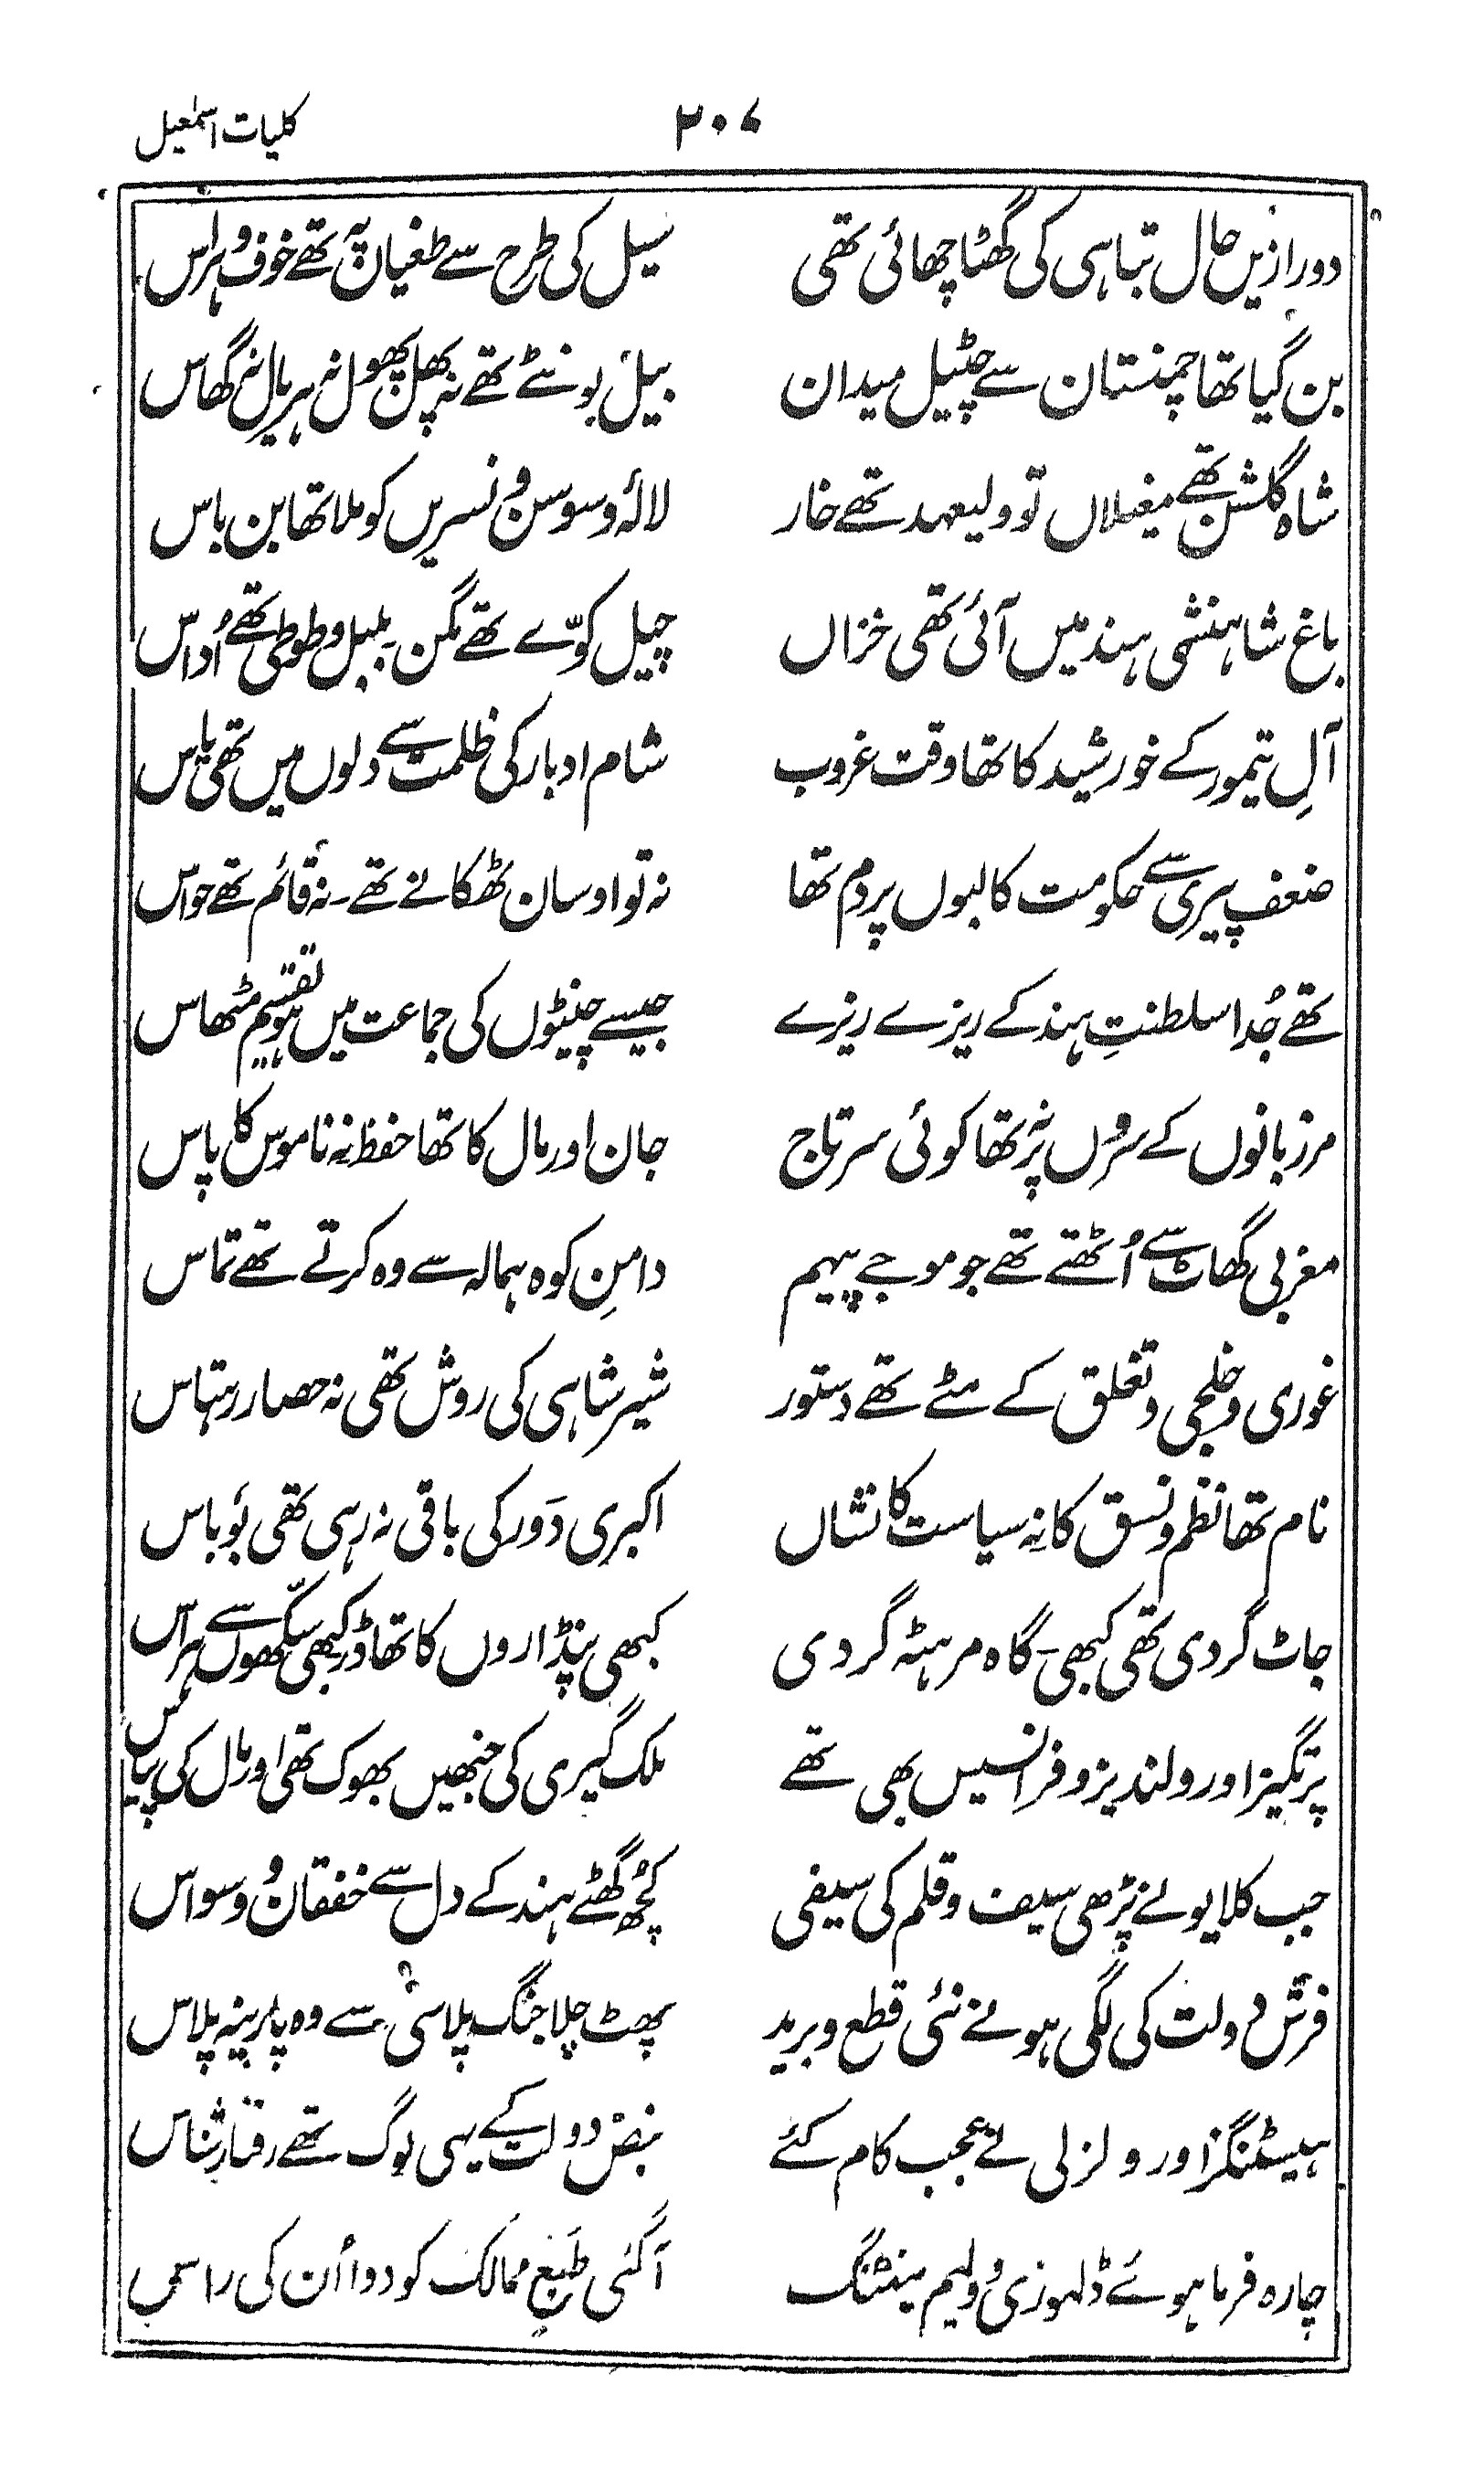 ۲۰۷ کلیات اسمٰعیل
دور ازیں حال تباہی کی گھٹا چھائی تھی سیل کی طرح سے طغیان پہ تھے خوف و ہراس
بن گیا تھا چمنستان سے چٹیل میدان بیل بونٹے تھے نہ پھل پھول نہ ہریال نہ گھاس
شاہ گلشن تھے مغیلاں تو ولیعہد تھے خار لالۂ و سوسن و نسریں کو ملا تھا بن باس
باغ شاہنشہی ہند میں آئی تھی خزاں چیل کوّے تھے مگن۔ بلبل و طوطی تھے اُداس
آلِ تیمور کے خورشید کا تھا وقت غروب شام ادبار کی ظلمت سے دلوں میں تھی یاس
ضعف پیری سے حکومت کا لبوں پر دم تھا نہ تو اوسان ٹھکانے تھے۔ نہ قائم تھے حواس
تھے جُدا سلطنتِ ہند کے ریزے ریزے جیسے چنیٹوں کی جماعت میں ہو تقسیم مٹھاس
مرزبانوں کے سروں پر نہ تھا کوئی سرتاج جان اور مال کا تھا حفظ نہ ناموس کا پاس
مغربی گھاٹ سے اُٹھتے تھے جو موجے پیہم دامنِ کوہ ہمالہ سے وہ کرتے تھے تماس
غوری و خلجی و تغلق کے مٹے تھے دستور شیر شاہی کی روش تھی نہ حصار رہتاس
نام تھا نظم و نسق کا نہ سیاست کا نشاں اکبری دَور کی باقی نہ رہی تھی بُو باس
جاٹ گردی تھی کبھی۔ گاہ مرہٹہ گردی کبھی پنڈاروں کا تھا ڈر کبھی سکّھوں سے ہراس
پرتگیز اور ولندیز و فرانسیس بھی تھے ملک گیری کی جنھیں بھوک تھی اور مال کی پیاس
جب کلایو نے پڑھی سیف و قلم کی سیفی کُچھ گھٹے ہند کے دل سے خفقان و وسواس
فرش دولت کی لگی ہونے نئی قطع و برید پھٹ چلا جنگ پلاسی سے وہ پارینہ پلاس
ہیسٹنگز اور ولزلی نے عجب کام کئے نبض دولت کے یہی لوگ تھے رفتار شناس
چارہ فرما ہوئے ڈلہوزی و ولیم بنٹنگ آ گئی طبعِ ممالک کو دوا اُن کی راس